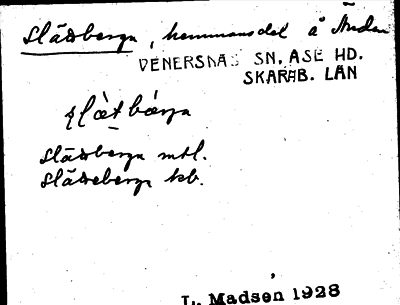 Slädberga, hemmansdel å Anden
VENERSNÄS SN, ÅSE HD.
SKARAB. LÄN
slädbärga
Slädberga mtl.
Slädeberga kb.
L. Madsen 1928